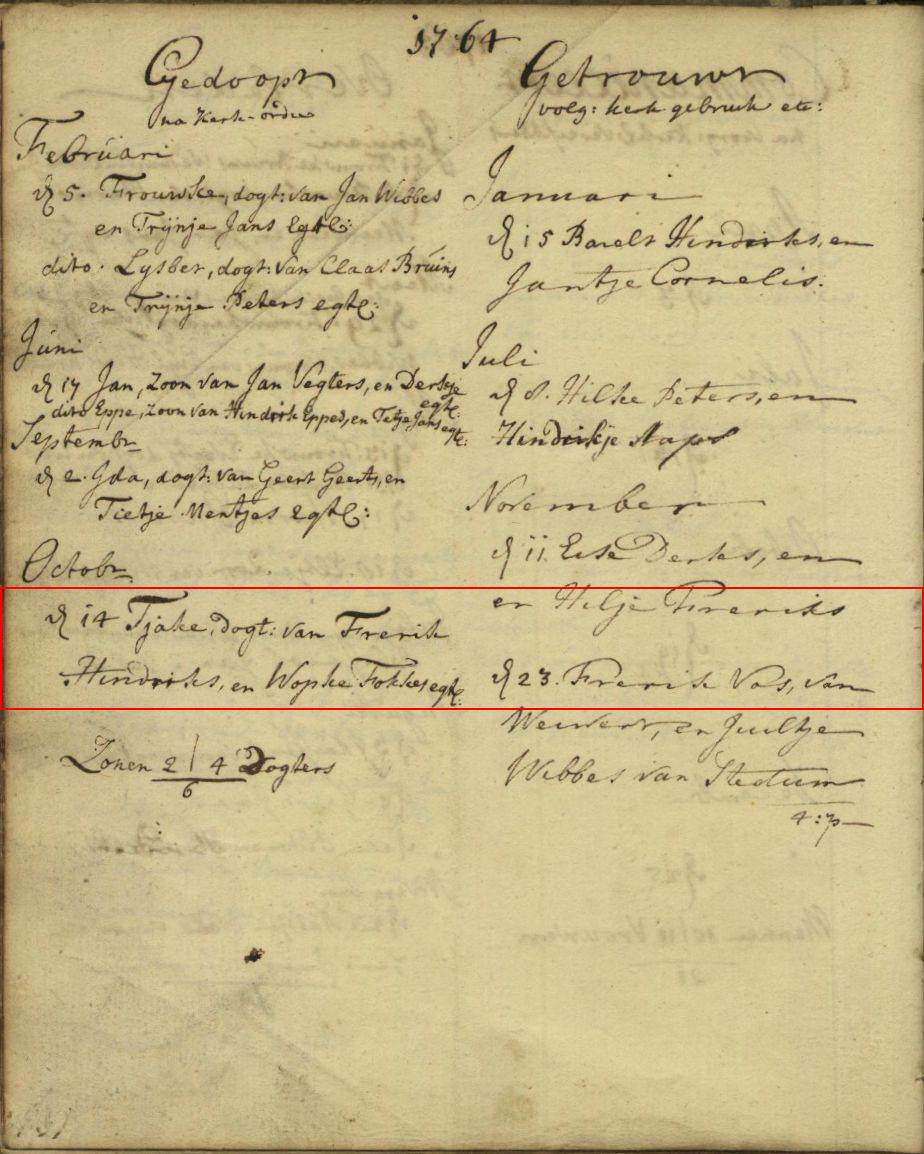 1764
Gedoopt
na Kerk-ordre
Februari
d 5. Frouwke, dogt: van Jan Wibbes
en Trijnje Jans Egtl:
dito. Lysbet, dogt: van Claas Bruins
en Trijnje Peters egtl:
Juni
d 17 Jan, Zoon van Jan Vegters, en Derkje
egtl:
dito Eppe, Zoon van Hindrik Eppes, en Tetje Jans
egtl:
Septembr
d 2. Yda, dogt: van Geert Geerts, en
Tietje Mentjes Egtl:
Octobr
d 14 Tjake, dogt: van Frerik
Hindriks, en Wopke Fokkes egtl:
Zonen 2 | 4 Dogters
6
Getrouwt
volg: kerk gebruik etc:
Januari
d 15 Barelt Hindriks, en
Jantje Cornelis.
Juli
d 8. Hilke Peters, en
Hindrikje
November
d 11 Derks, en
en Hilje Freriks
d 23. Frerik Vos, van
Weiwert, en Jultje
Wibbes van Stedum
4:p